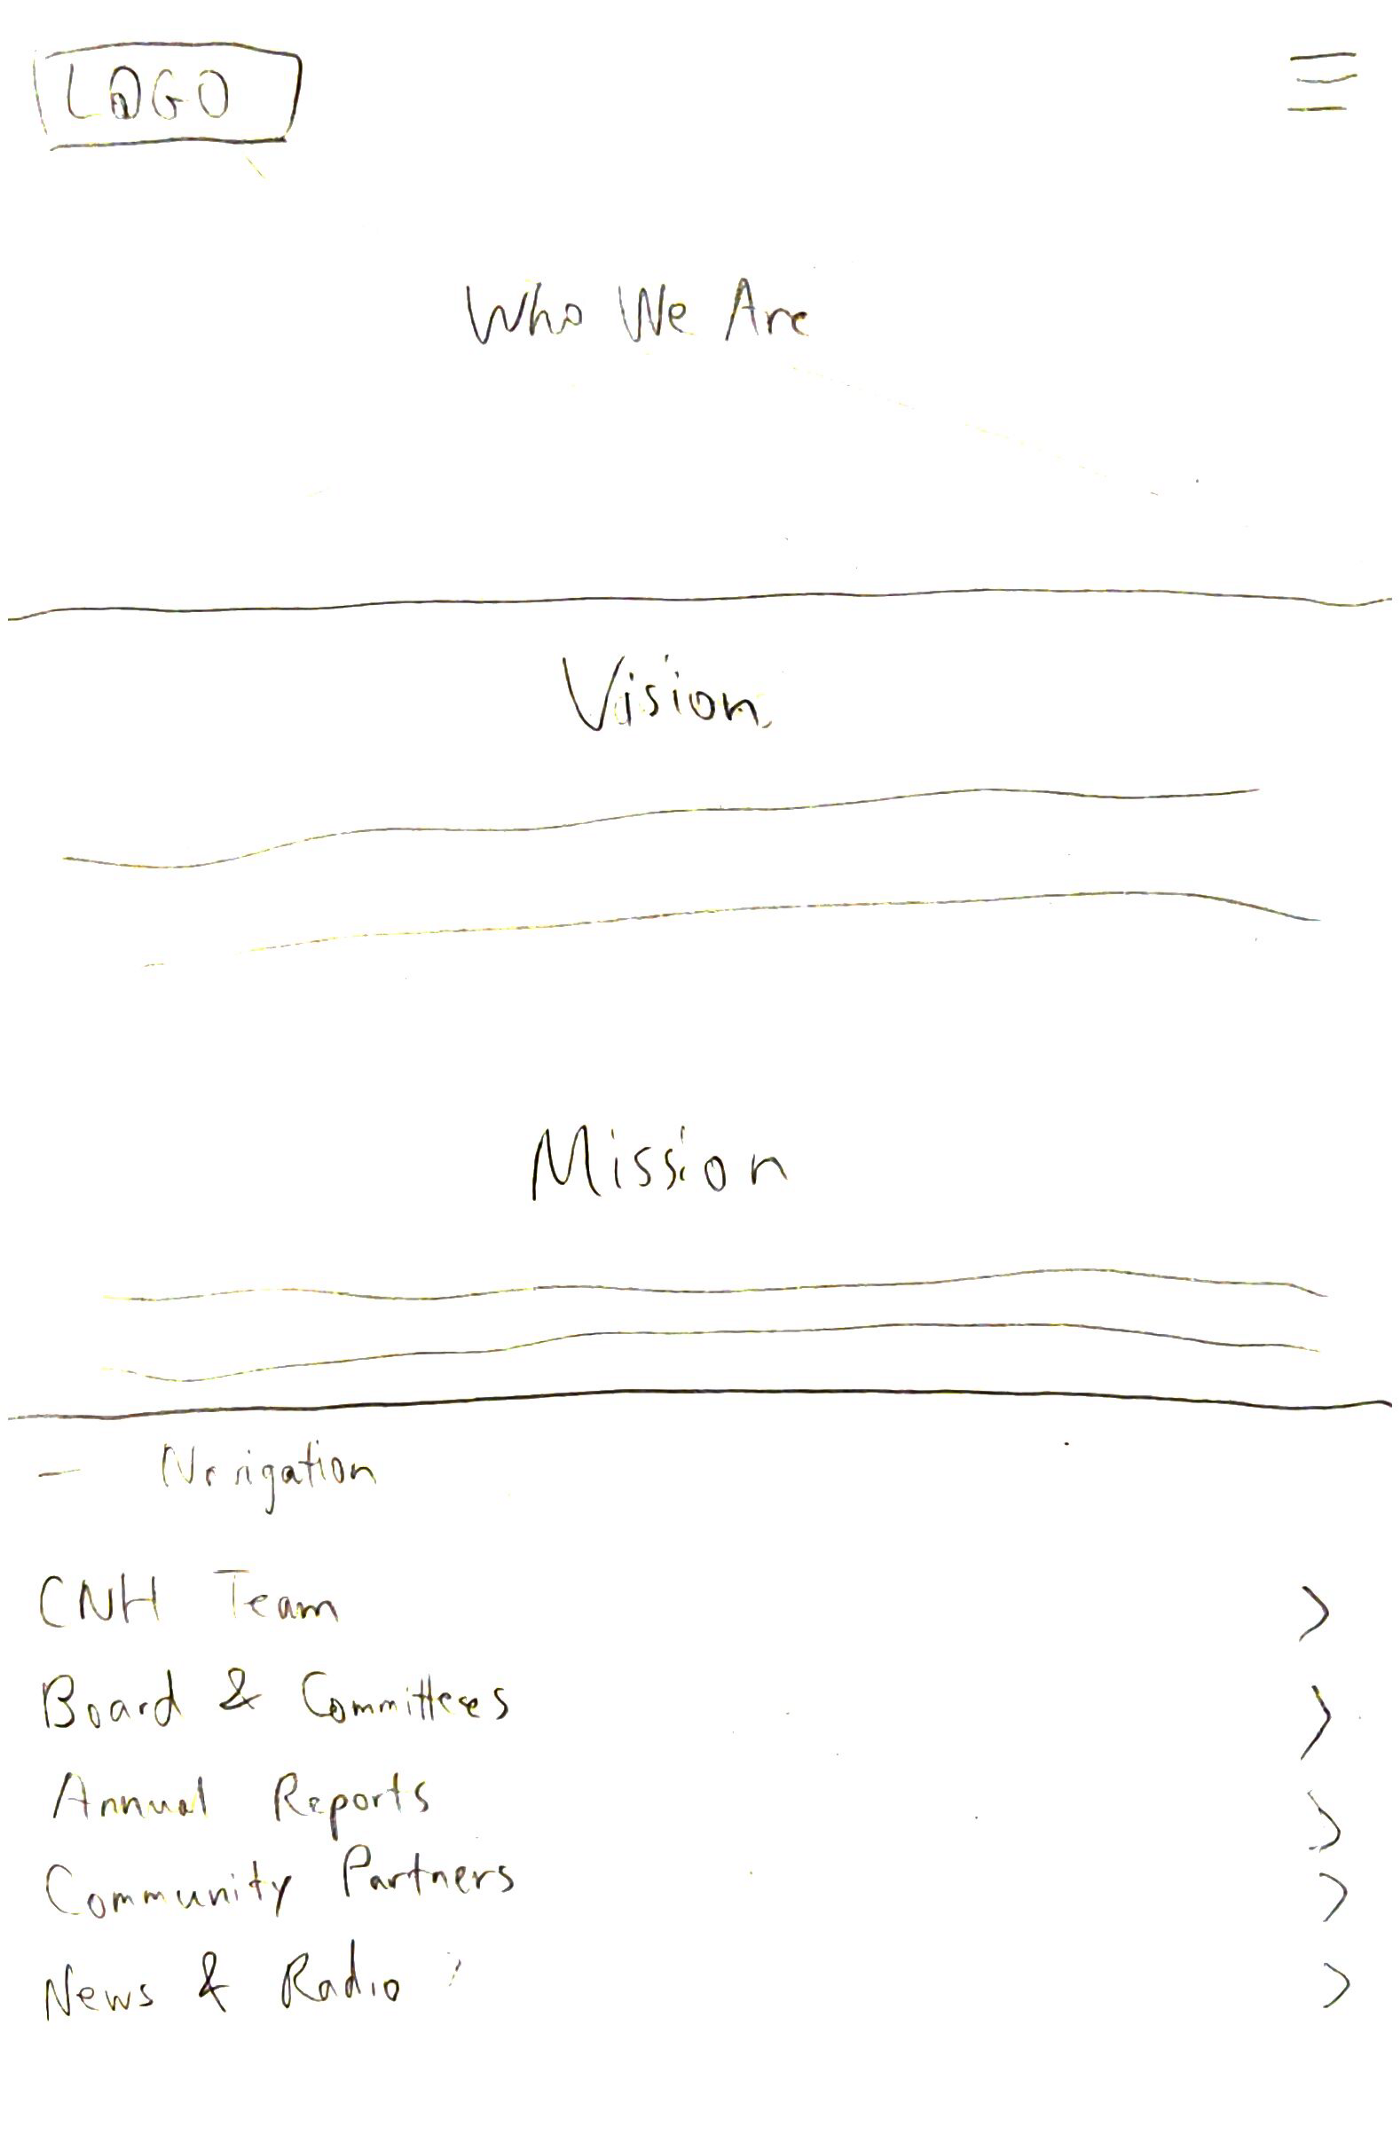 LOGO
Who We Are
Vision
Mission
— Navigation
CNH Team >
Board & Committees >
Annual Reports >
Community Partners >
News & Radio >